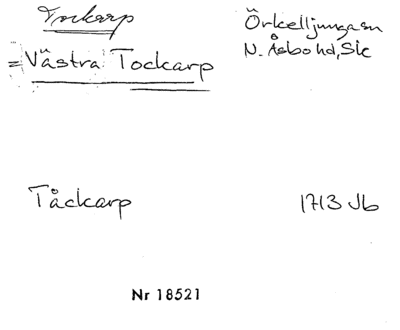 Tockarp
Örkelljunga sn
= Västra Tockarp
N. Åsbo hd, Sk
Tåckarp
1713 Jb
Nr 18521